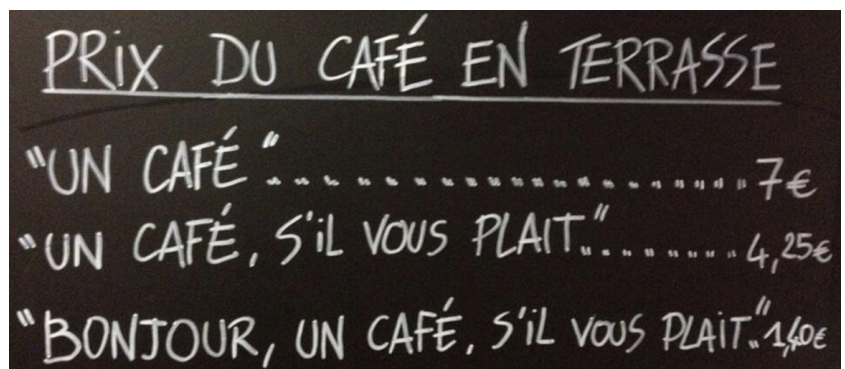 PRiX DU CAFÉ EN TERRASSE
"UN CAFÉ"........................7€
"UN CAFÉ, S'iL VOUS PLAIT."..........4,25€
"BONJOUR, UN CAFÉ, S'iL VOUS PLAiT."1,40€